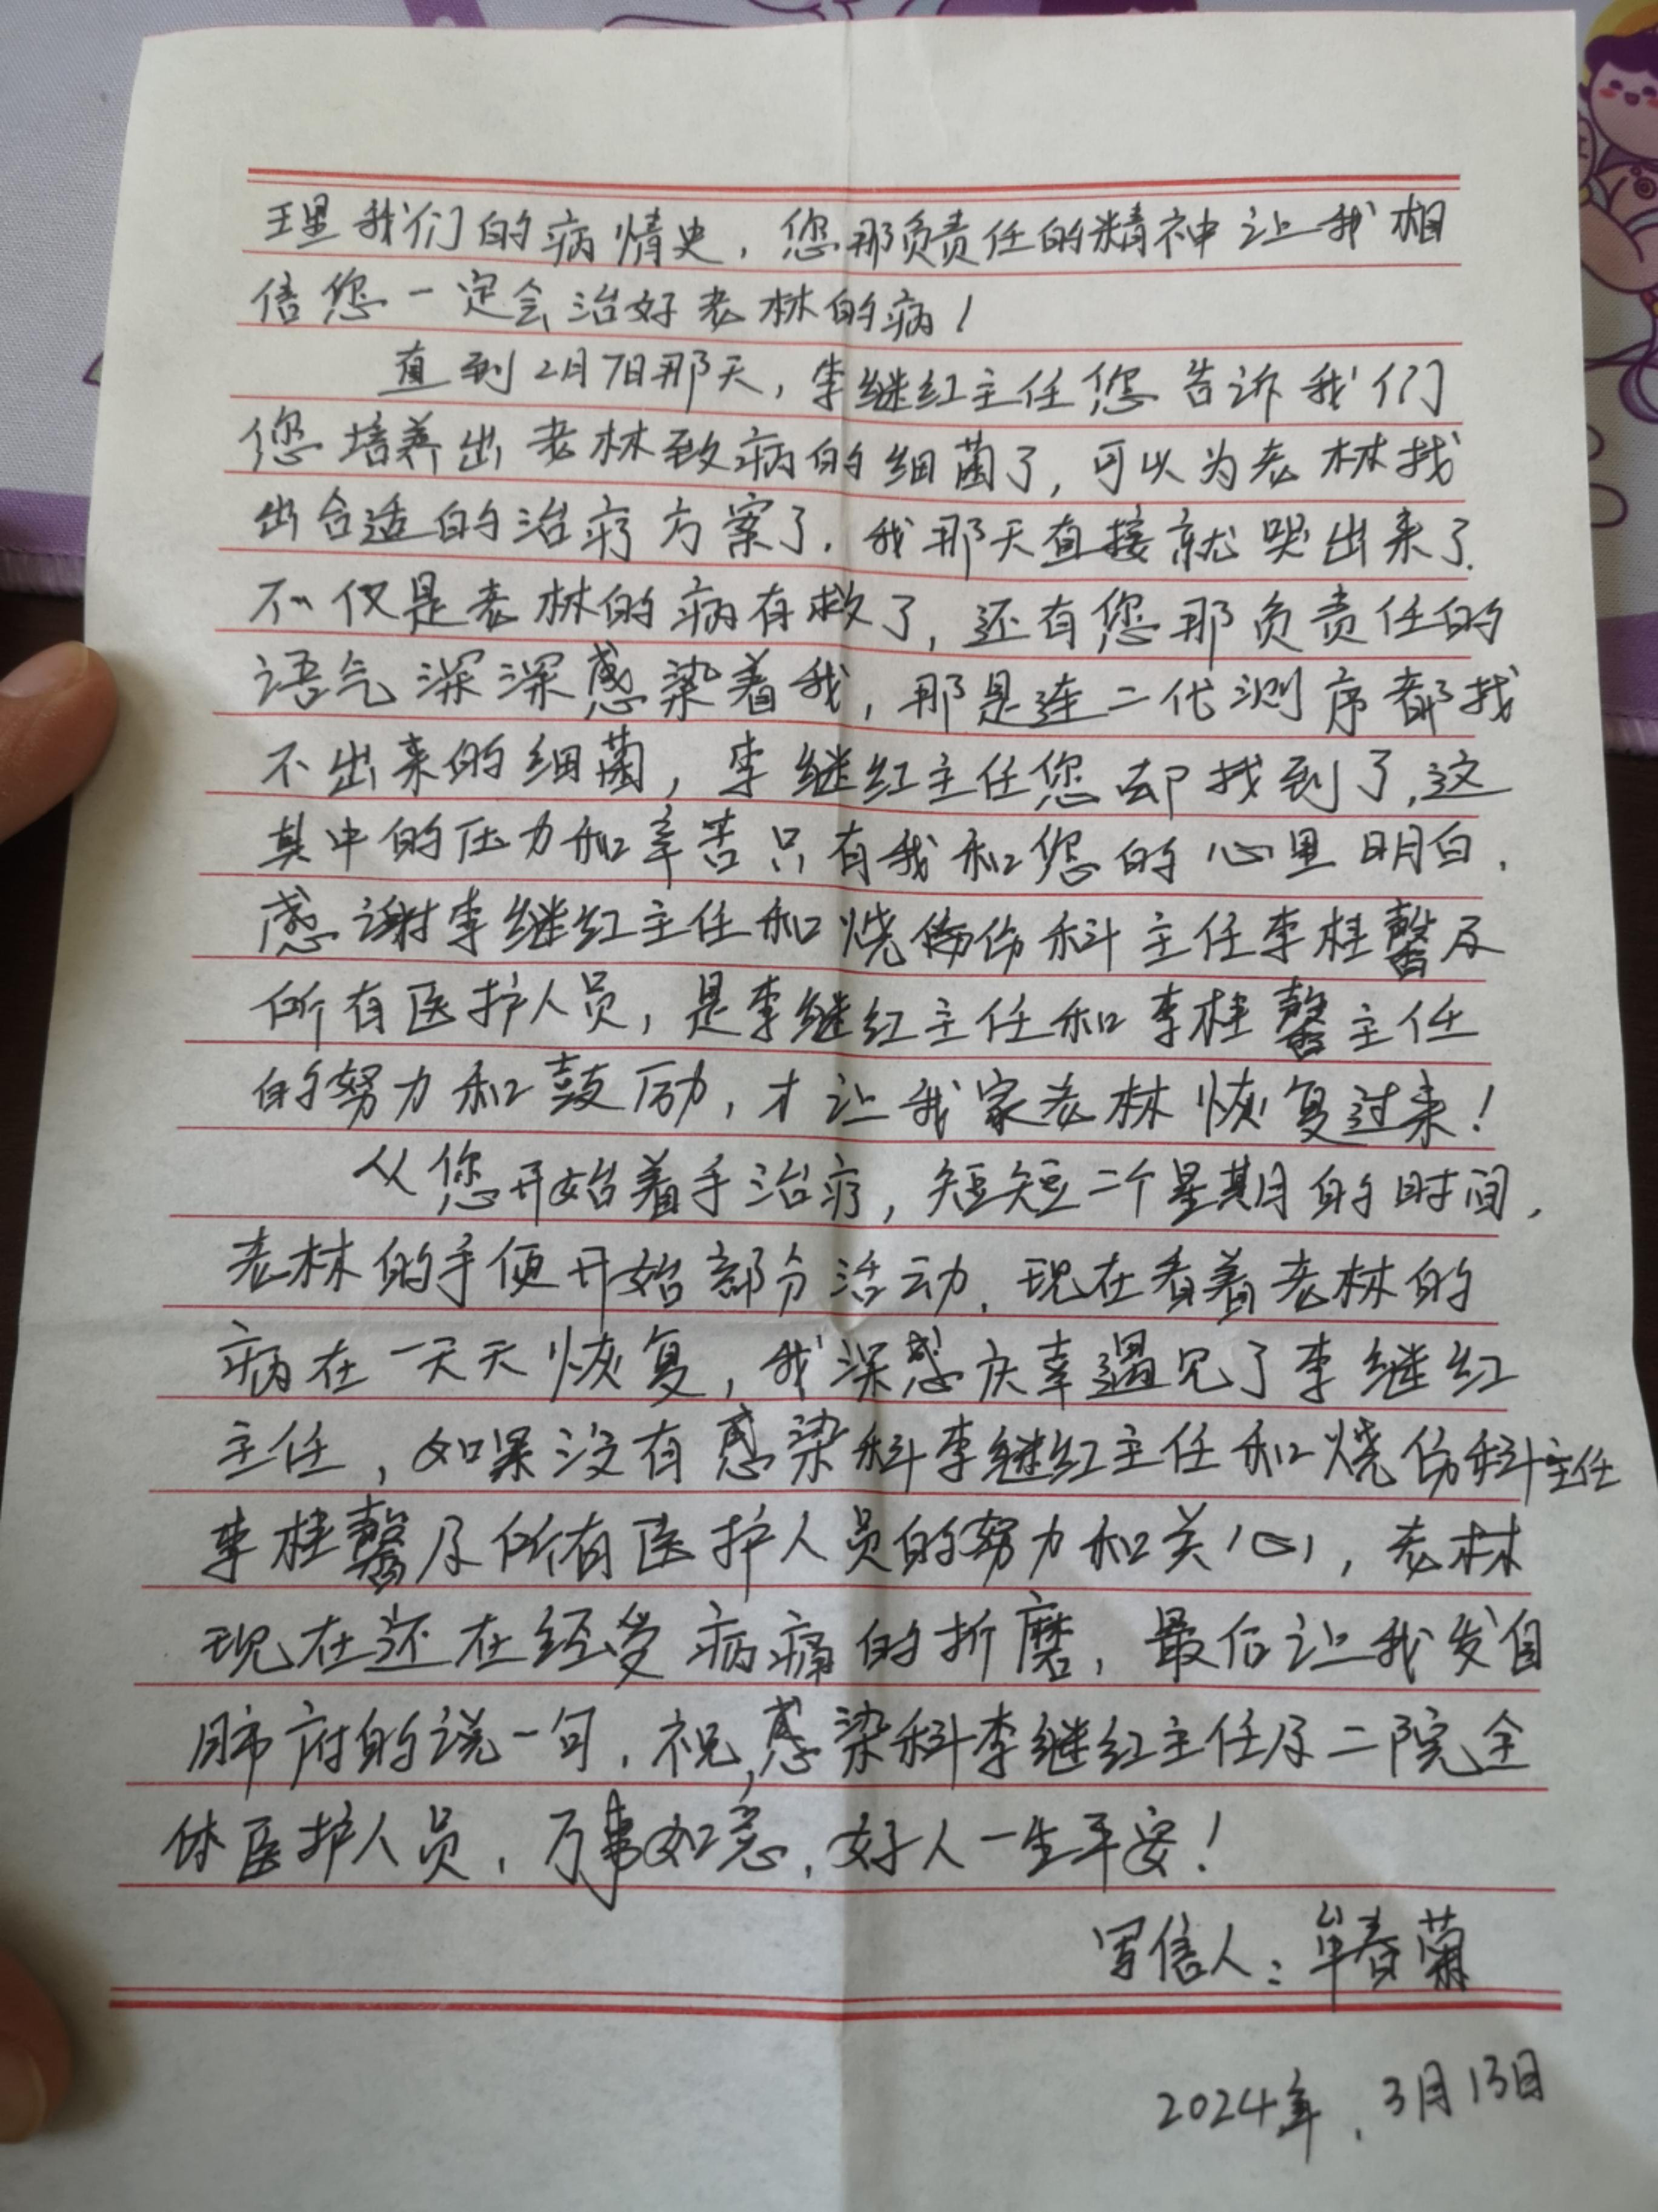 理我们的病情史，您那负责任的精神让我相
信您一定会治好老林的病！
直到2月7日那天，李继红主任您告诉我们
您培养出老林致病的细菌了，可以为老林找
出合适的治疗方案了．我那天直接就哭出来了．
不仅是老林的病有救了，还有您那负责任的
语气深深感染着我，那是连二代测序都找
不出来的细菌，李继红主任您却找到了，这
其中的压力和辛苦只有我和您的心里明白．
感谢李继红主任和烧伤科主任李桂馨及
所有医护人员，是李继红主任和李桂馨主任
的努力和鼓励，才让我家老林恢复过来！
从您开始着手治疗，短短二个星期的时间，
老林的手便开始部分活动．现在看着老林的
病在一天天恢复，我深感庆幸遇见了李继红
主任，如果没有感染科李继红主任和烧伤科主任
李桂馨及所有医护人员的努力和关心，老林
现在还在经受病痛的折磨，最后让我发自
肺府的说一句．祝，感染科李继红主任及二院全
体医护人员，万事如意，好人一生平安！
写信人：牟春菊
2024年．3月13日